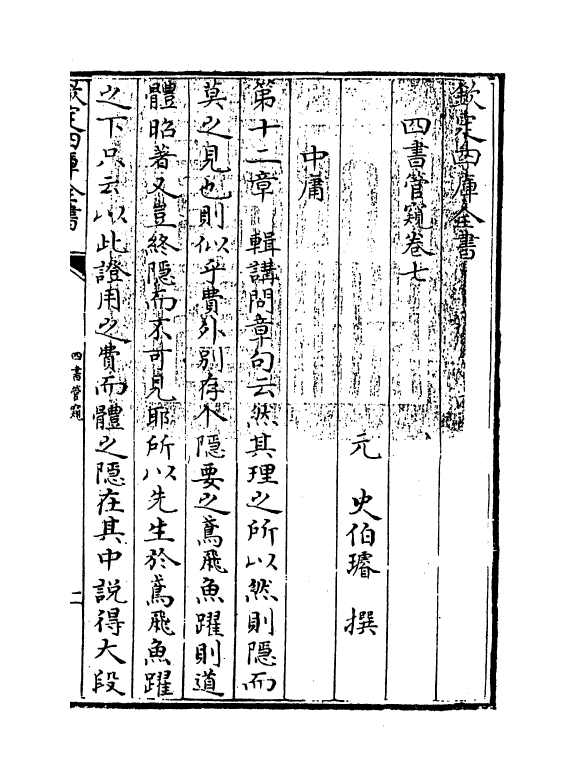 欽定四庫全書
四書管窺卷七
元 史伯璿 撰
中庸
第十二章 輯講問章句云然其理之所以然則隱而
莫之見也則似乎費外別存个隱要之鳶飛魚躍則道
體昭著又豈終隱而不可見耶所以先生於鳶飛魚躍
之下只云以此證用之費而體之隱在其中說得大段
欽定四庫全書
四書管窺